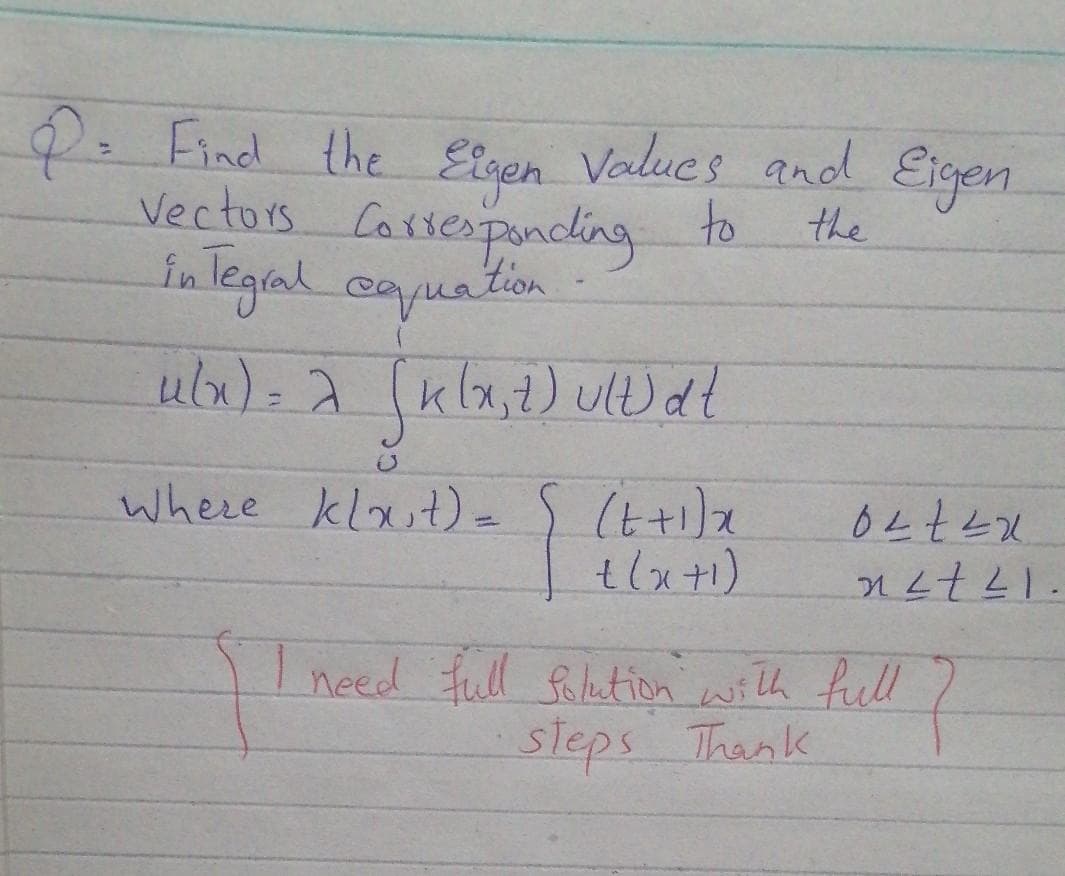 Q= Find the Eigen Values and Eigen
Vectors Corresponding to the
inTegral equation -
u(x) = λ ∫₀¹ k(x,t) u(t) dt
where k(x,t) = { (t+1)x 0≤t≤x
t(x+1) x≤t≤1.
{ I need full Solution with full }
steps Thank